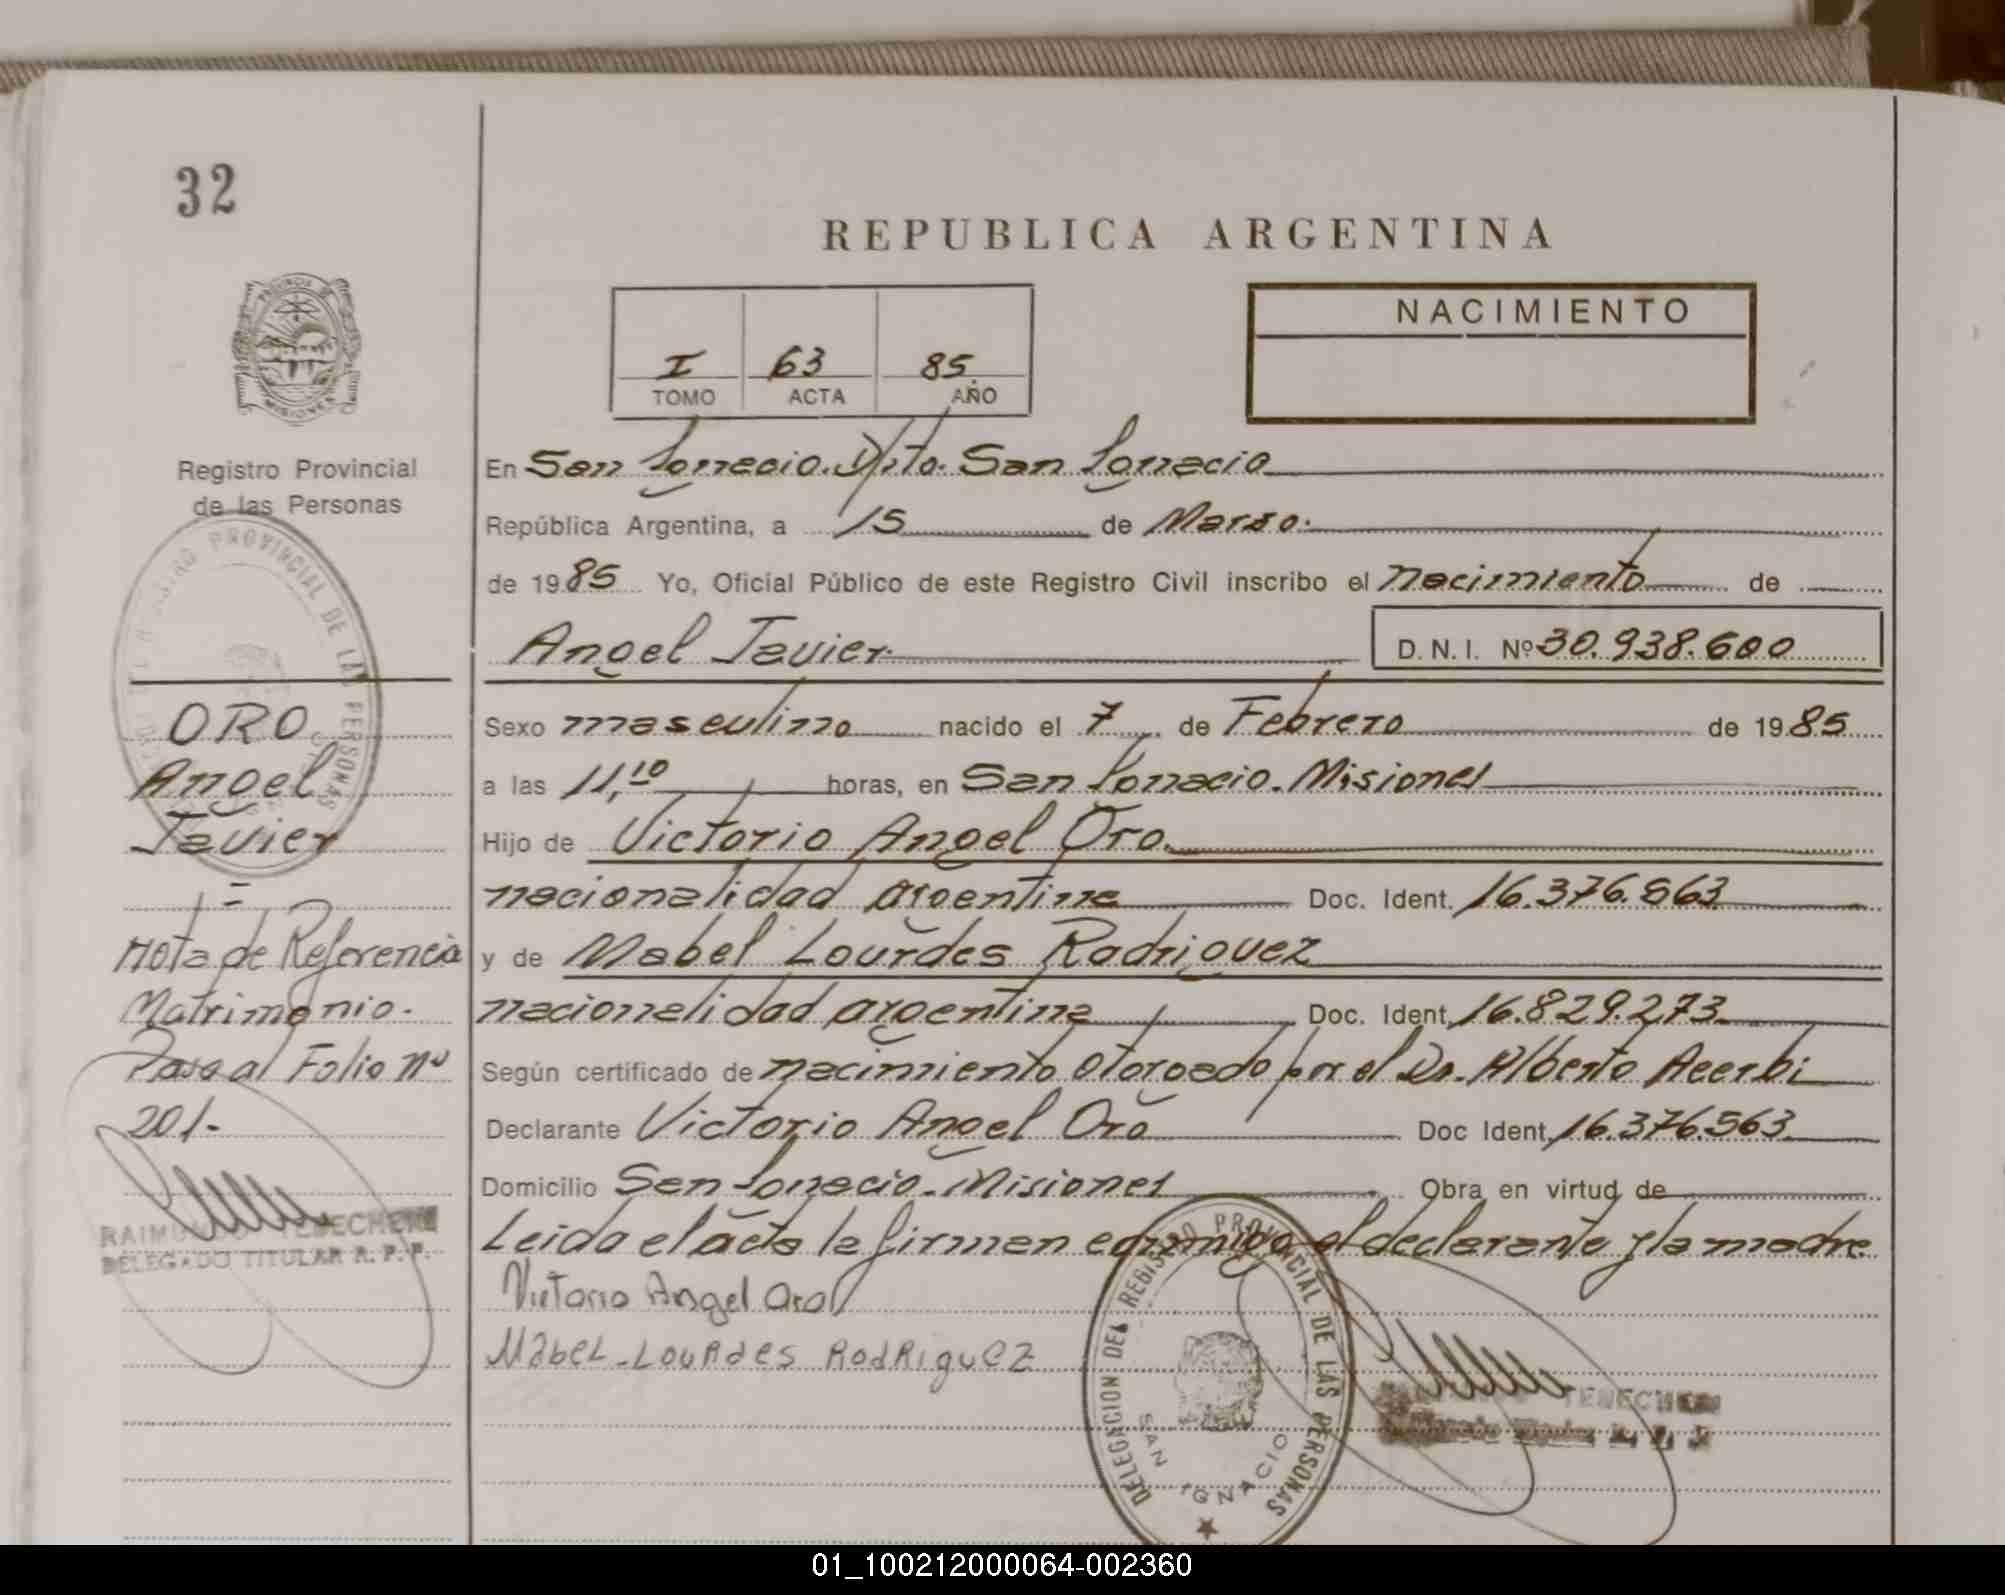 32
REPUBLICA ARGENTINA
PROVINCIA DE
MISIONES
NACIMIENTO
I 63 85
TOMO ACTA AÑO
Registro Provincial
de las Personas
En San Ignacio. Dpto. San Ignacio
República Argentina, a 15 de Marzo.
de 1985 Yo, Oficial Público de este Registro Civil inscribo el nacimiento de
Angel Javier D.N.I. Nº 30.938.600
Sexo masculino nacido el 7 de Febrero de 1985
a las 11,10 horas, en San Ignacio. Misiones
Hijo de Victorio Angel Oro.
nacionalidad argentina Doc. Ident. 16.376.563
y de Mabel Lourdes Rodriguez
nacionalidad argentina Doc. Ident. 16.829.273
Según certificado de nacimiento otorgado por el Dr. Alberto Acerbi
Declarante Victorio Angel Oro Doc Ident. 16.376.563
Domicilio San Ignacio. Misiones Obra en virtud de
Leida el acta la firman conmigo el declarante y la madre
Victorio Angel Oro
Mabel Lourdes Rodriguez
ORO
Angel
Javier
Nota de Referencia
Matrimonio.
Pasa al Folio nº
201.
DELEGADO TITULAR R. P. P.
REGISTRO PROVINCIAL DE LAS PERSONAS
DELEGACION DEL REGISTRO PROVINCIAL DE LAS PERSONAS
SAN IGNACIO
TENECHEM
01_100212000064-002360